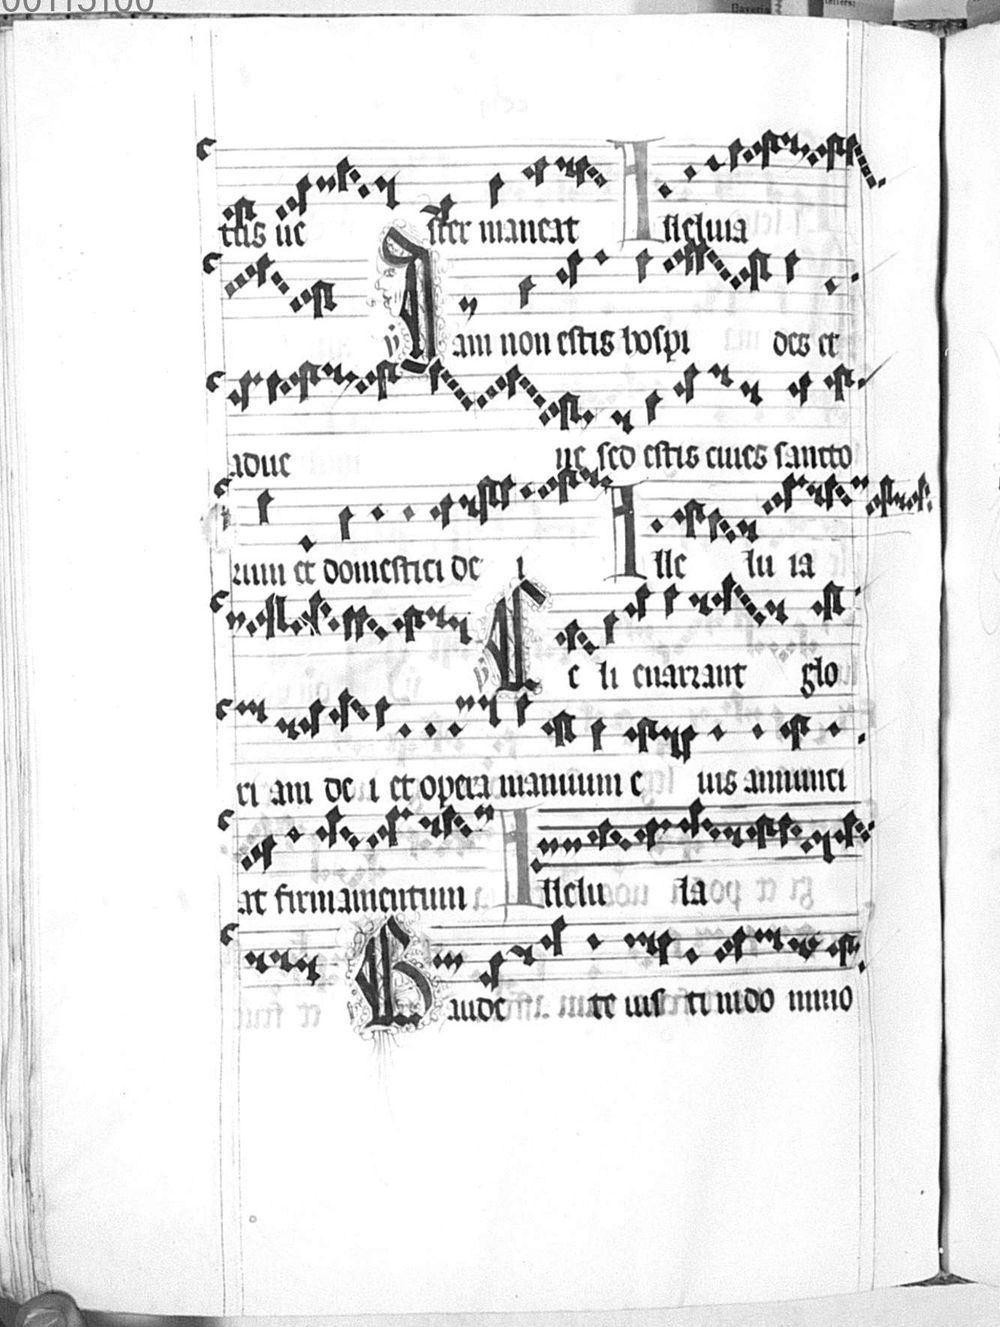 00113100
Bavaria
ctus ue ster maneat Alleluia
V Iam non estis hospi des et
adue ne sed estis ciues sancto
rum et domestici de i Alle lu ia
V Ce li enarrant glo
ri am de i et opera manuum e ius annunci
at firmamentum Allelu ia
V Gaude te iusti in do mino